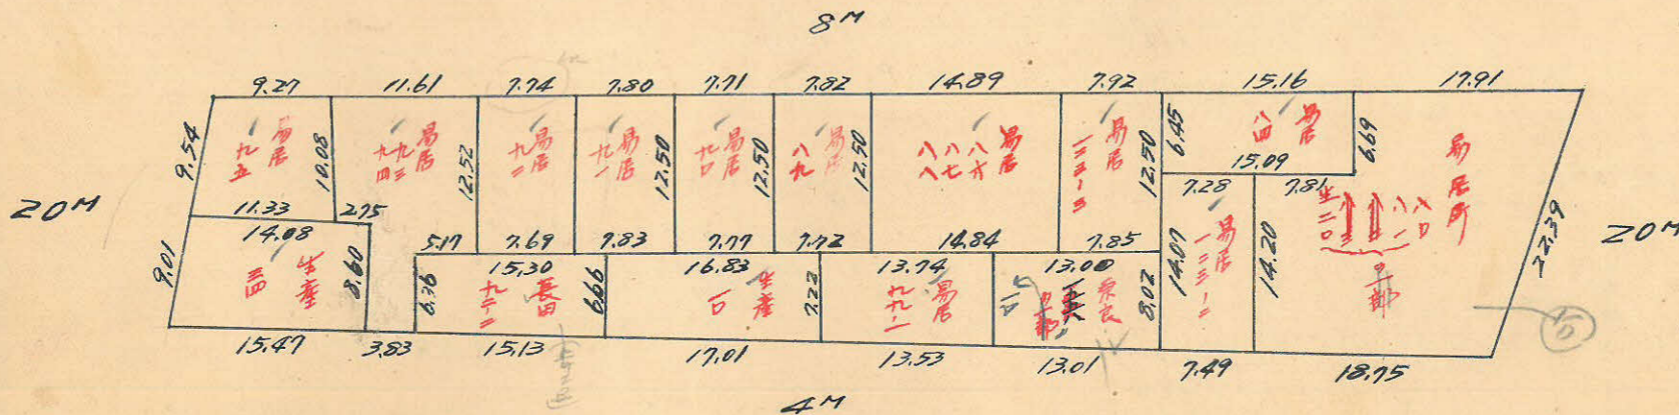 8M
9.27 11.61 7.74 7.80 7.71 7.82 14.89 7.92 15.16 17.91
20M
9.54
易居
九五
10.08
易居
九三
九四
12.52
易居
九二
易居
九一
12.50
易居
九〇
12.50
易居
八九
12.50
易居
八六
八七
八八
易居
一二三ノ三
12.50
6.45
易居
八四
6.69
易居町
15.09
11.33 2.75
7.28 7.81
5.17 7.69 7.83 7.77 7.72 14.84 7.85
9.01
14.08
生産
三四
8.60
6.36
15.30
長田
九二ノ二
6.66
16.83
生産
一〇
7.22
13.74
易居
九九ノ一
13.00
奈良
8.02
14.07
易居
一二三ノ二
14.20
八〇
八一
生二〇
ノ一部
22.39
20M
5
15.47 3.83 15.13 17.01 13.53 13.01 7.49 18.75
4M